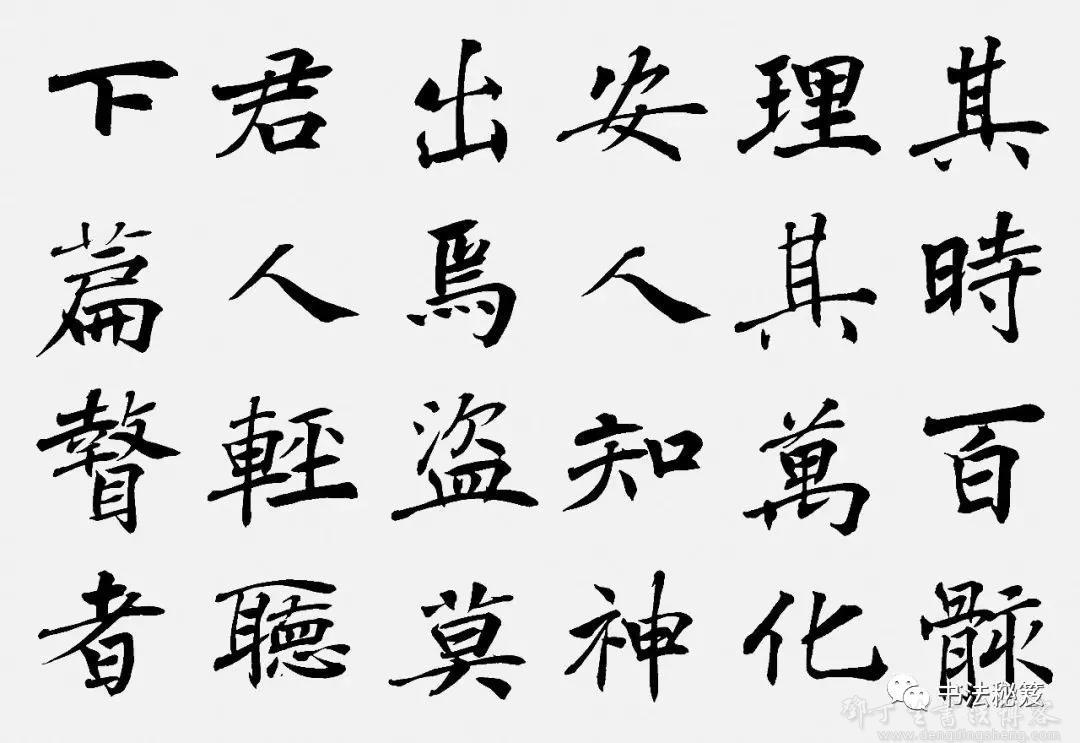 其時百骸
理其萬化
安人知神
出焉盜莫
君人輕聽
下篇瞽者
书法秘笈
鄧丁生書法博客
www.dengdingsheng.com